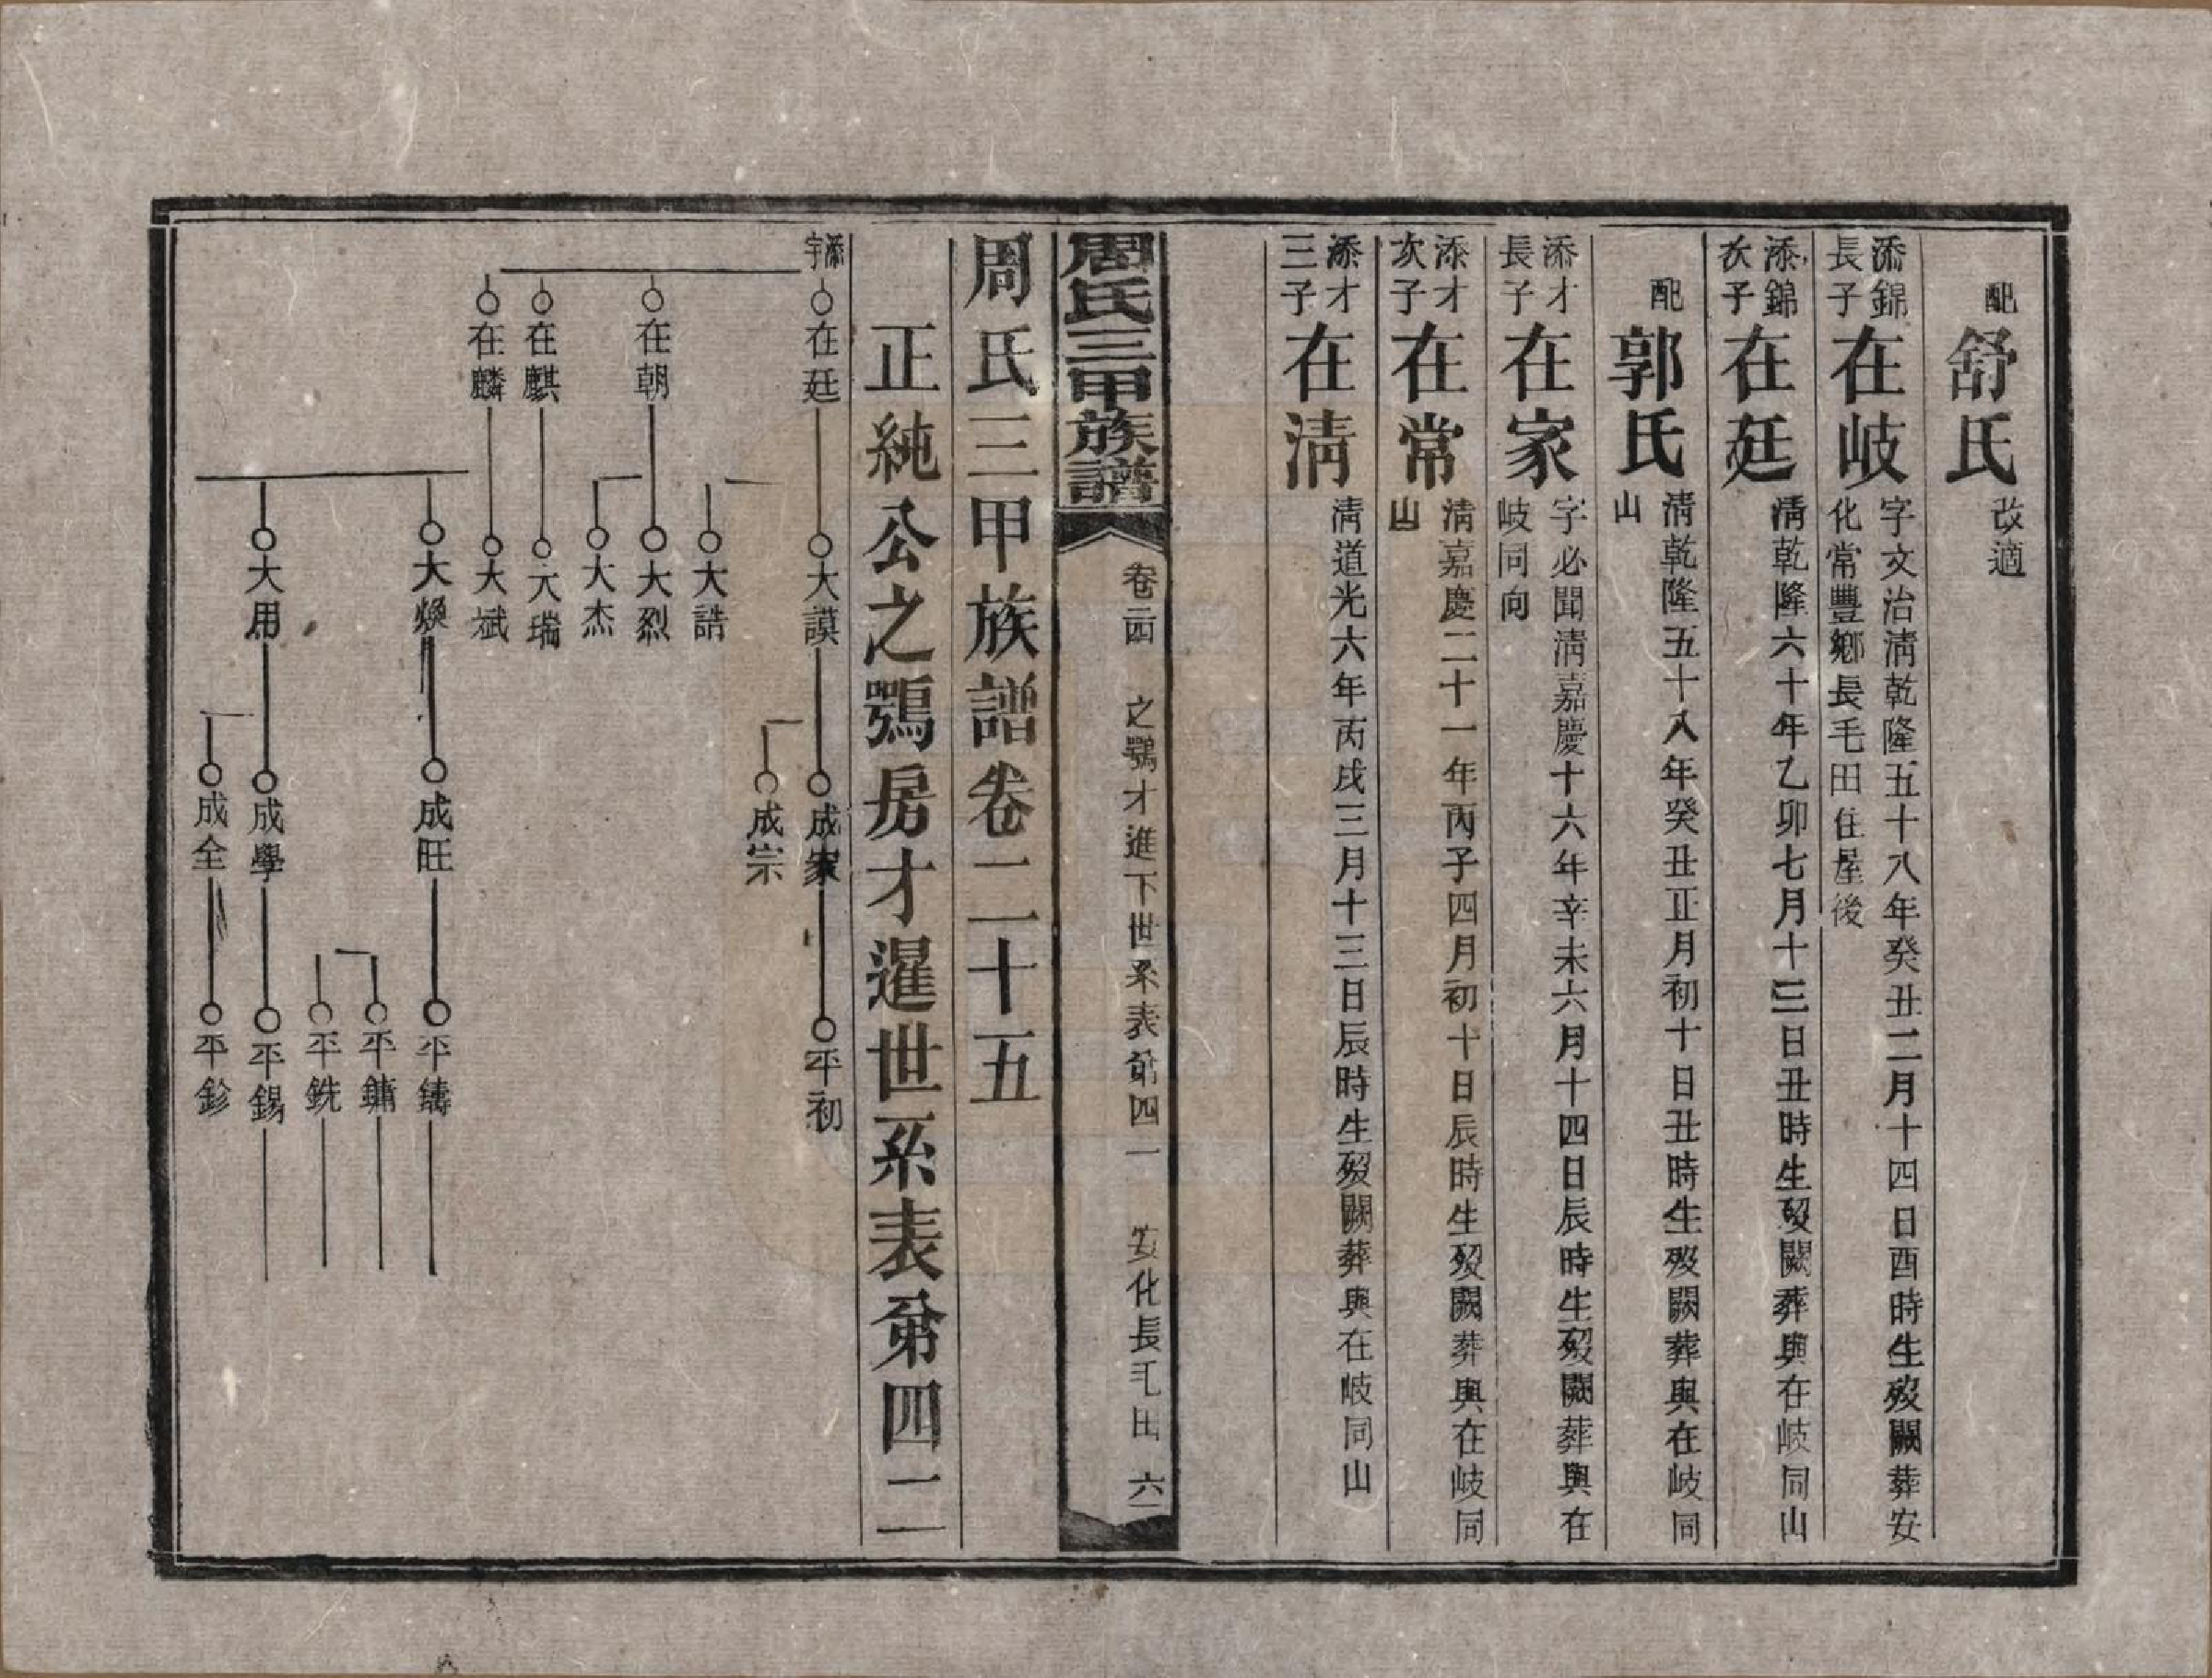 配舒氏改適
添錦長子在岐字文治淸乾隆五十八年癸丑二月十四日酉時生歿闕葬安
化常豐鄉長毛田住屋後
添錦次子在廷淸乾隆六十年乙卯七月十三日丑時生歿闕葬與在岐同山
配郭氏淸乾隆五十八年癸丑正月初十日丑時生歿闕葬與在岐同
山
添才長子在家字必聞淸嘉慶十六年辛未六月十四日辰時生歿闕葬與在
岐同向
添才次子在常淸嘉慶二十一年丙子四月初十日辰時生歿闕葬與在岐同
山
添才三子在淸淸道光六年丙戌三月十三日辰時生歿闕葬與在岐同山
周氏三甲族譜
卷二四
之鶚才進下世系表弟四一
安化長毛田
六一
周氏三甲族譜卷二十五
正純公之鶚房才暹世系表弟四二
添宇
在廷
大謨
成家
平初
成宗
大誥
在朝
大烈
大杰
在麒
大瑞
在麟
大斌
大煥
成旺
平鑄
平鏞
平銑
大用
成學
平錫
成全
平鉁